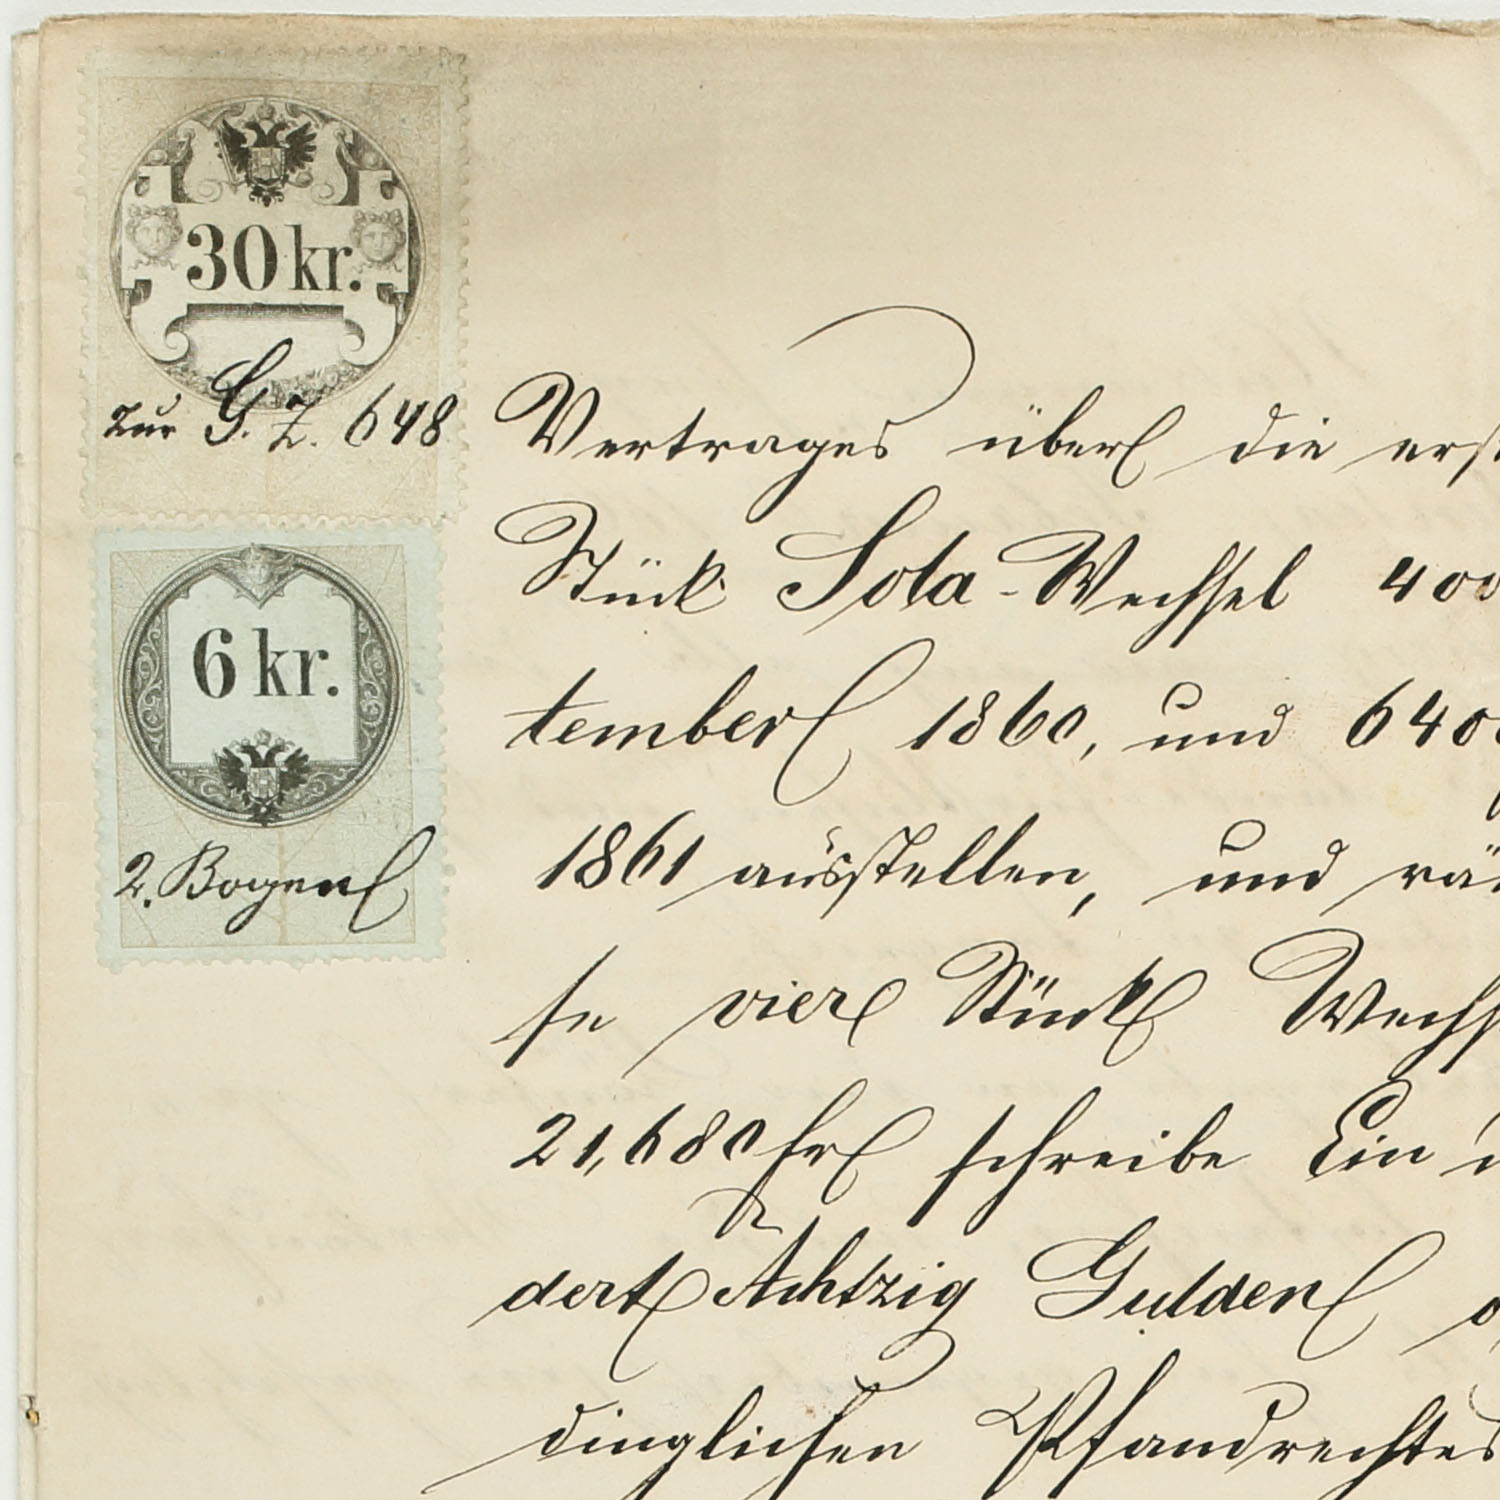 30 kr.
zur G. Z. 648
6 kr.
2. Bogen
Vertrages über die erst
Stück Sola-Wechsel 400
tember 1860, und 640
1861 ausstellen, und
se vier Stück Wechs
21,680 fr schreibe Ein
dert Achtzig Gulden
dinglichen Pfandrechtes